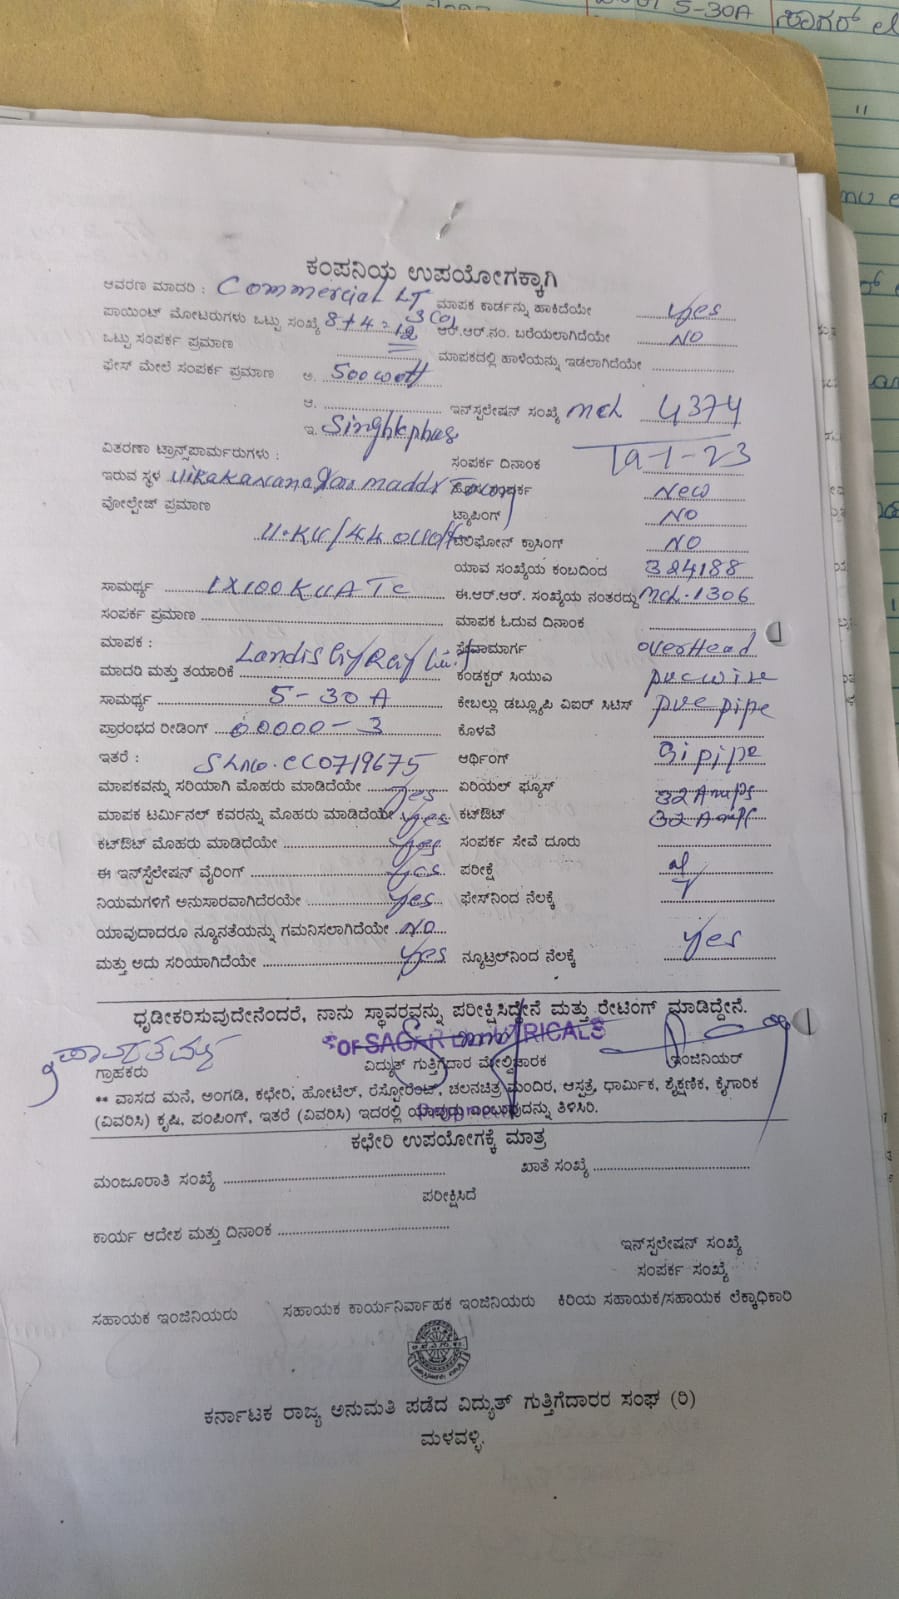 5-30A
ಸಾಗರ್
ಕಂಪನಿಯ ಉಪಯೋಗಕ್ಕಾಗಿ
ಆವರಣ ಮಾದರಿ : Commercial LT ಮಾಪಕ ಕಾರ್ಡನ್ನು ಹಾಕಿದೆಯೇ yes
ಪಾಯಿಂಟ್ ಮೋಟರುಗಳು ಒಟ್ಟು ಸಂಖ್ಯೆ 8+4=12 ಆರ್.ಆರ್.ನಂ. ಬರೆಯಲಾಗಿದೆಯೇ NO
ಒಟ್ಟು ಸಂಪರ್ಕ ಪ್ರಮಾಣ ಮಾಪಕದಲ್ಲಿ ಹಾಳೆಯನ್ನು ಇಡಲಾಗಿದೆಯೇ
ಫೇಸ್ ಮೇಲೆ ಸಂಪರ್ಕ ಪ್ರಮಾಣ ಅ. 500 watt
ಆ. ಇನ್‌ಸ್ಪಲೇಷನ್ ಸಂಖ್ಯೆ MCL 4374
ಇ. Singhlephas
ವಿತರಣಾ ಟ್ರಾನ್ಸ್‌ಪಾರ್ಮರುಗಳು : ಸಂಪರ್ಕ ದಿನಾಂಕ 19-1-23
ಇರುವ ಸ್ಥಳ New
ವೋಲ್ಟೇಜ್ ಪ್ರಮಾಣ ಟ್ಯಾಪಿಂಗ್ NO
11.KV/440volt ಟೆಲಿಫೋನ್ ಕ್ರಾಸಿಂಗ್ NO
ಯಾವ ಸಂಖ್ಯೆಯ ಕಂಬದಿಂದ 324188
ಸಾಮರ್ಥ್ಯ 1X100KVA TC ಈ.ಆರ್.ಆರ್. ಸಂಖ್ಯೆಯ ನಂತರದ್ದು MCL.1306
ಸಂಪರ್ಕ ಪ್ರಮಾಣ ಮಾಪಕ ಓದುವ ದಿನಾಂಕ
ಮಾಪಕ : ಸೇವಾಮಾರ್ಗ overHead
ಮಾದರಿ ಮತ್ತು ತಯಾರಿಕೆ Landis ಕಂಡಕ್ಟರ್ ಸಿಯುಎ pvc wire
ಸಾಮರ್ಥ್ಯ 5-30A ಕೇಬಲ್ಲು ಡಬ್ಲ್ಯೂಪಿ ವಿಐರ್ ಸಿಟಿಸ್ pvc pipe
ಪ್ರಾರಂಭದ ರೀಡಿಂಗ್ 00000-3 ಕೊಳವೆ
ಇತರೆ : SLNo. CC0719675 ಆರ್ಥಿಂಗ್ Gi pipe
ಮಾಪಕವನ್ನು ಸರಿಯಾಗಿ ಮೊಹರು ಮಾಡಿದೆಯೇ yes ಏರಿಯಲ್ ಫ್ಯೂಸ್ 32 Amps
ಮಾಪಕ ಟರ್ಮಿನಲ್ ಕವರನ್ನು ಮೊಹರು ಮಾಡಿದೆಯೇ yes ಕಟ್‌ಔಟ್ 32 Amps
ಕಟ್‌ಔಟ್ ಮೊಹರು ಮಾಡಿದೆಯೇ yes ಸಂಪರ್ಕ ಸೇವೆ ದೂರು
ಈ ಇನ್‌ಸ್ಪೆಲೇಷನ್ ವೈರಿಂಗ್ yes ಪರೀಕ್ಷೆ
ನಿಯಮಗಳಿಗೆ ಅನುಸಾರವಾಗಿದೆರಯೇ yes ಫೇಸ್‌ನಿಂದ ನೆಲಕ್ಕೆ
ಯಾವುದಾದರೂ ನ್ಯೂನತೆಯನ್ನು ಗಮನಿಸಲಾಗಿದೆಯೇ NO
ಮತ್ತು ಅದು ಸರಿಯಾಗಿದೆಯೇ yes ನ್ಯೂಟ್ರಲ್‌ನಿಂದ ನೆಲಕ್ಕೆ yes
ಧೃಡೀಕರಿಸುವುದೇನೆಂದರೆ, ನಾನು ಸ್ಥಾವರವನ್ನು ಪರೀಕ್ಷಿಸಿದ್ದೇನೆ ಮತ್ತು ರೇಟಿಂಗ್ ಮಾಡಿದ್ದೇನೆ.
OF SAGAR ELECTRICALS
ಗ್ರಾಹಕರು ವಿದ್ಯುತ್ ಗುತ್ತಿಗೆದಾರ ಮೇಲ್ವಿಚಾರಕ ಇಂಜಿನಿಯರ್
** ವಾಸದ ಮನೆ, ಅಂಗಡಿ, ಕಛೇರಿ, ಹೋಟೆಲ್, ರೆಸ್ಟೋರೆಂಟ್, ಚಲನಚಿತ್ರ ಮಂದಿರ, ಆಸ್ಪತ್ರೆ, ಧಾರ್ಮಿಕ, ಶೈಕ್ಷಣಿಕ, ಕೈಗಾರಿಕ
(ವಿವರಿಸಿ) ಕೃಷಿ, ಪಂಪಿಂಗ್, ಇತರೆ (ವಿವರಿಸಿ) ಇದರಲ್ಲಿ ಯಾವುದು ಎಂಬುವುದನ್ನು ತಿಳಿಸಿರಿ.
ಕಛೇರಿ ಉಪಯೋಗಕ್ಕೆ ಮಾತ್ರ
ಮಂಜೂರಾತಿ ಸಂಖ್ಯೆ ಖಾತೆ ಸಂಖ್ಯೆ
ಪರೀಕ್ಷಿಸಿದೆ
ಕಾರ್ಯ ಆದೇಶ ಮತ್ತು ದಿನಾಂಕ
ಇನ್‌ಸ್ಪಲೇಷನ್ ಸಂಖ್ಯೆ
ಸಂಪರ್ಕ ಸಂಖ್ಯೆ
ಸಹಾಯಕ ಇಂಜಿನಿಯರು ಸಹಾಯಕ ಕಾರ್ಯನಿರ್ವಾಹಕ ಇಂಜಿನಿಯರು ಕಿರಿಯ ಸಹಾಯಕ/ಸಹಾಯಕ ಲೆಕ್ಕಾಧಿಕಾರಿ
ಕರ್ನಾಟಕ ರಾಜ್ಯ ಅನುಮತಿ ಪಡೆದ ವಿದ್ಯುತ್ ಗುತ್ತಿಗೆದಾರರ ಸಂಘ (ರಿ)
ಮಳವಳ್ಳಿ.